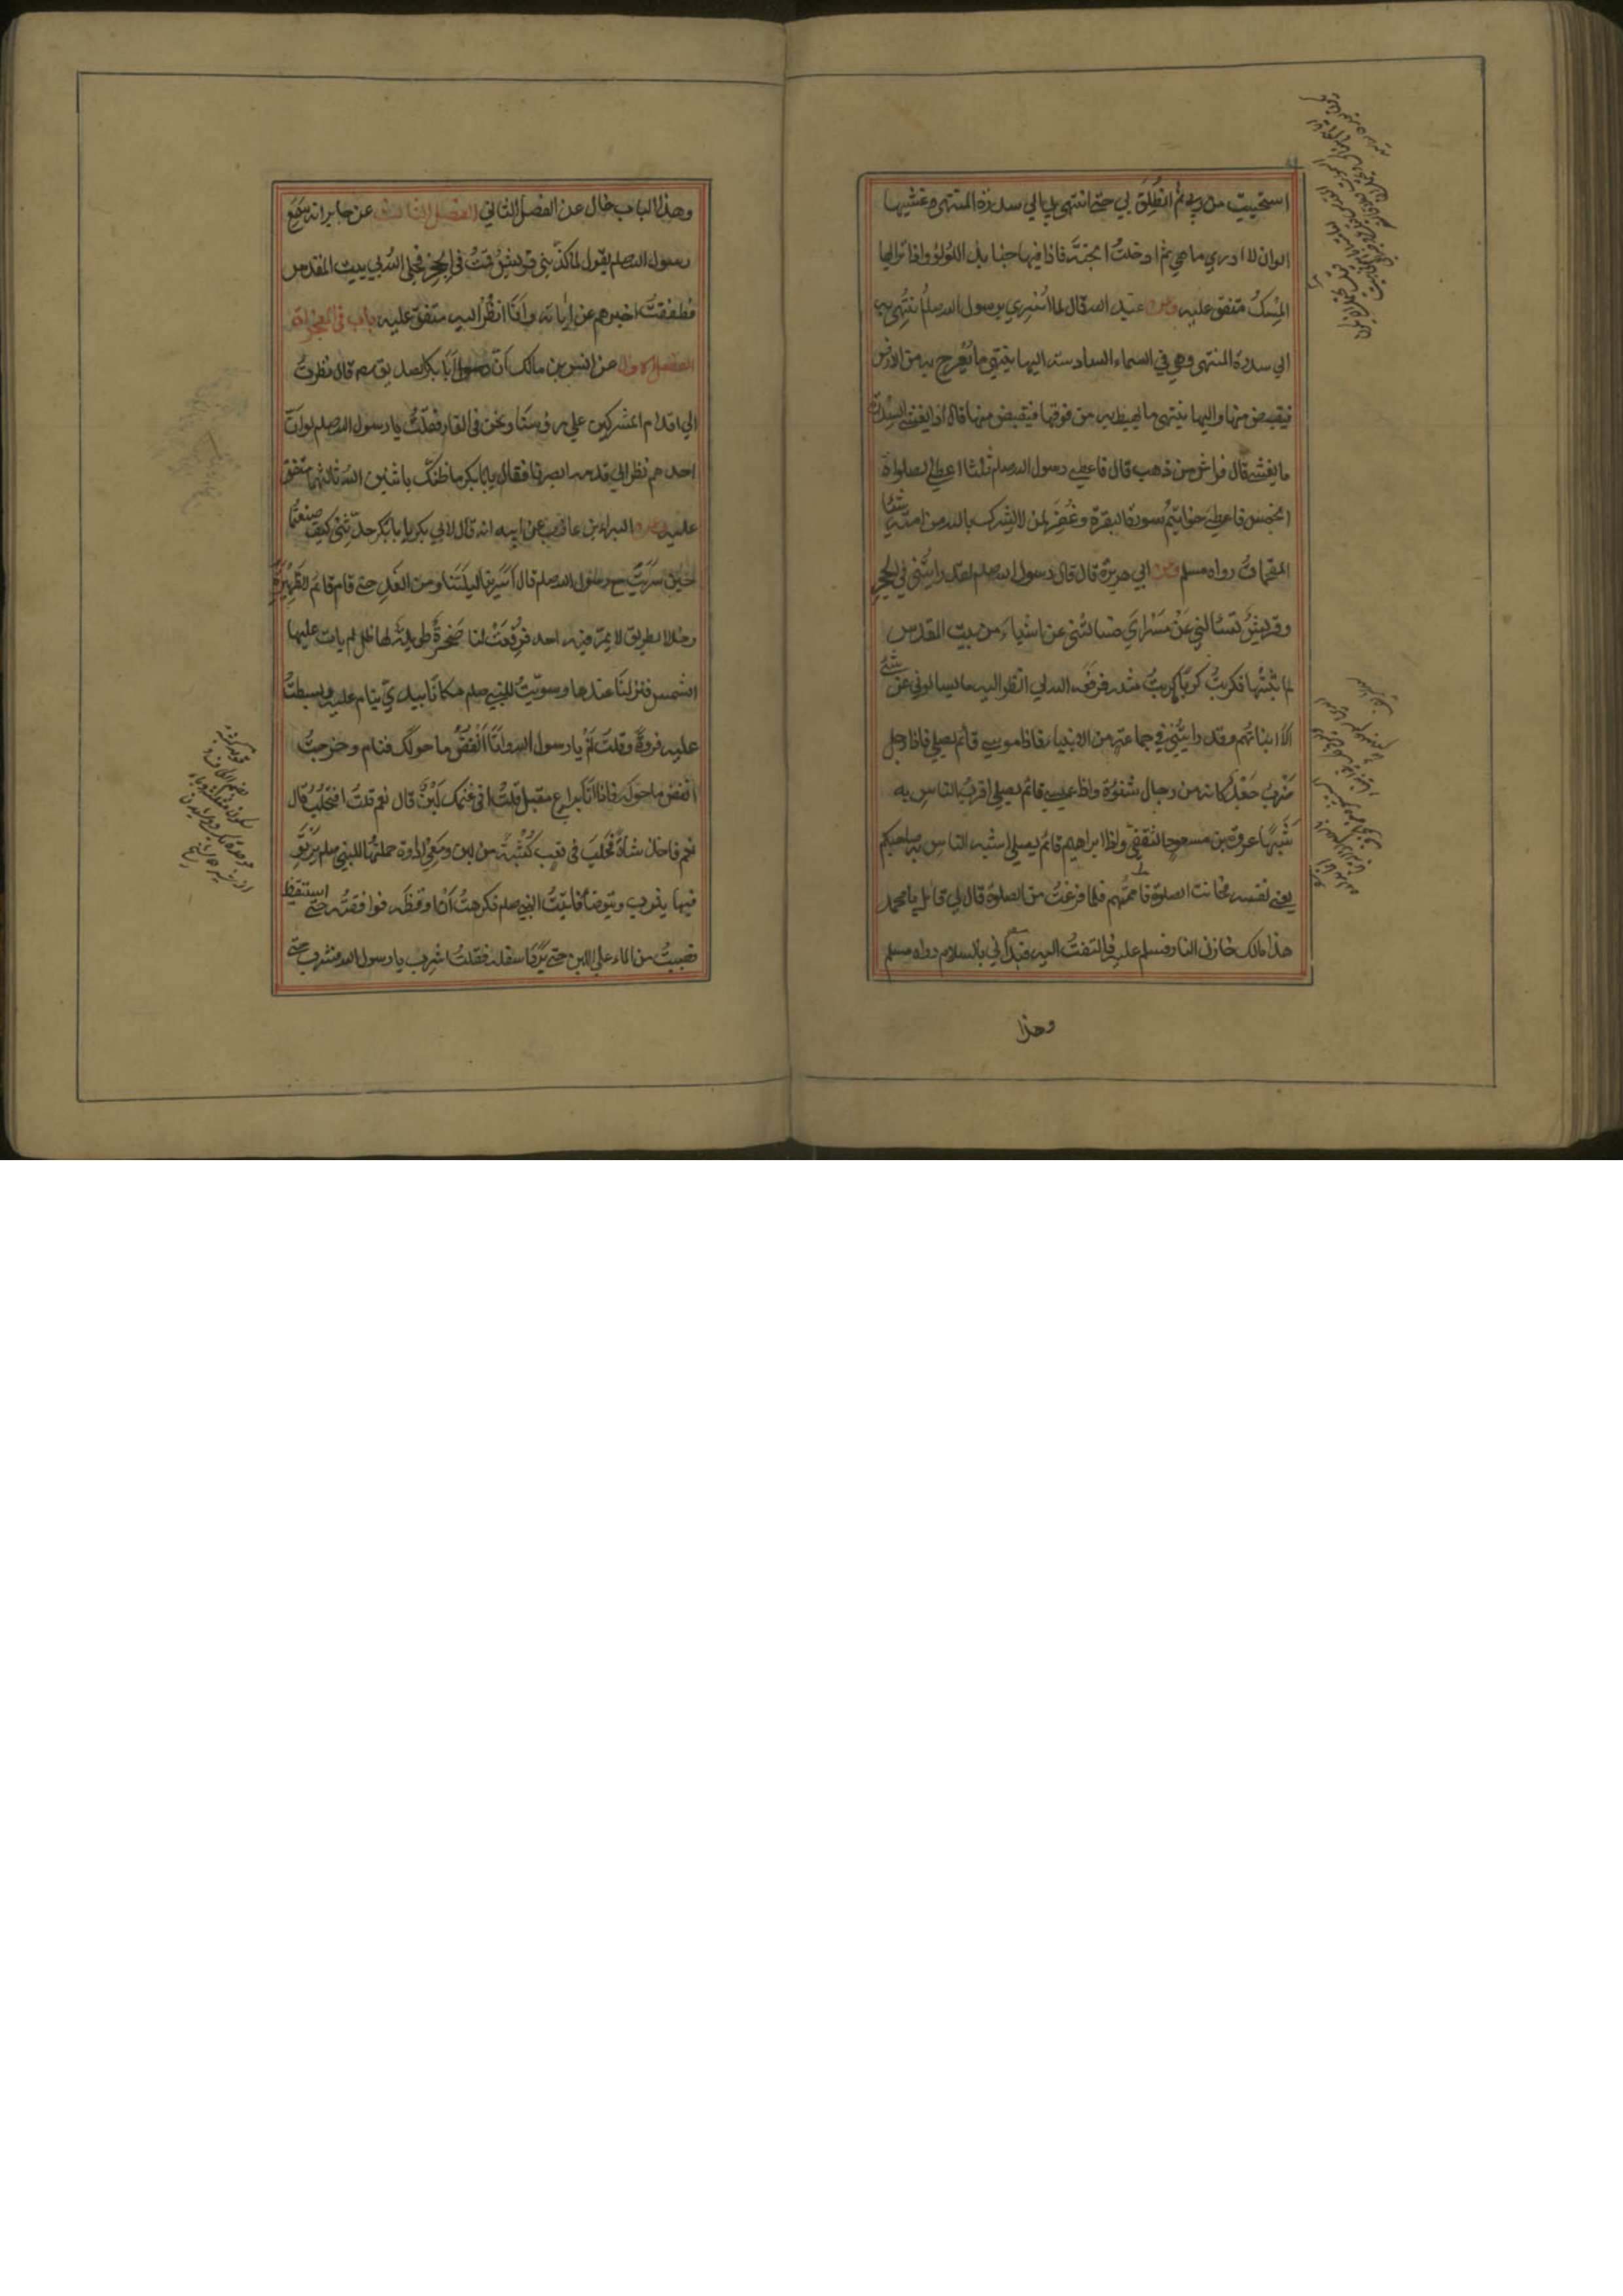 استحييت من ربي ثم انطلق بي حتى انتهى بي الي سدرة المنتهى وغشيها
الوان لا ادري ما هي ثم ادخلت الجنة فاذا فيها جنابذ اللؤلؤ واذا ترابها
المسك متفق عليه وعن عبد الله قال لما اسري برسول الله صلعم انتهي به
الي سدرة المنتهى وهي في السماء السادسة اليها ينتهي ما يعرج به من الارض
فيقبض منها واليها ينتهي ما يهبط به من فوقها فيقبض منها قال اذ يغشى السدرة
ما يغشى قال فراش من ذهب قال فاعطي رسول الله صلعم ثلثا اعطي الصلوات
الخمس واعطي خواتيم سورة البقرة وغفر لمن لا يشرك بالله من امته شيئا
المقحمات رواه مسلم وعن ابي هريرة قال قال رسول الله صلعم لقد رايتني في الحجر
وقريش تسالني عن مسراي فسالتني عن اشياء من بيت المقدس
لم اثبتها فكربت كربا ما كربت مثله فرفعه الله لي انظر اليه ما يسالوني عن شئ
الا انباتهم وقد رايتني في جماعة من الانبياء فاذا موسى قائم يصلي فاذا رجل
ضرب جعد كانه من رجال شنوءة واذا عيسى قائم يصلي اقرب الناس به
شبها عروة بن مسعود الثقفي واذا ابراهيم قائم يصلي اشبه الناس به صاحبكم
يعني نفسه فحانت الصلوة فاممتهم فلما فرغت من الصلوة قال لي قائل يا محمد
هذا مالك خازن النار فسلم عليه فالتفت اليه فبدأني بالسلام رواه مسلم
وهذا
وهذا الباب خال عن الفصل الثاني الفصل الثالث عن جابر انه سمع
رسول الله صلعم يقول لما كذبني قريش قمت في الحجر فجلى الله لي بيت المقدس
فطفقت اخبرهم عن اياته وانا انظر اليه متفق عليه باب في المعجزات
الفصل الاول عن انس بن مالك ان ابا بكر الصديق رضه قال نظرت
الي اقدام المشركين علي رؤسنا ونحن في الغار فقلت يا رسول الله صلعم لو ان
احدهم نظر الي قدمه ابصرنا فقال يا ابا بكر ما ظنك باثنين الله ثالثهما متفق
عليه وعن البراء بن عازب عن ابيه انه قال لابي بكر يا ابا بكر حدثني كيف صنعتما
حين سريت مع رسول الله صلعم قال اسرينا ليلتنا ومن الغد حتى قام قائم الظهيرة
وخلا الطريق لا يمر فيه احد فرفعت لنا صخرة طويلة لها ظل لم يات عليها
الشمس فنزلنا عندها وسويت للنبي صلعم مكانا بيدي ينام عليه وبسطت
عليه فروة وقلت نم يا رسول الله وانا انفض ما حولك فنام وخرجت
انفض ما حوله فاذا انا براع مقبل قلت افي غنمك لبن قال نعم قلت افتحلب قال
نعم فاخذ شاة فحلب في قعب كثبة من لبن ومعي اداوة حملتها للنبي صلعم يرتوي
فيها يشرب ويتوضأ فاتيت النبي صلعم فكرهت ان اوقظه فوافقته حتى استيقظ
فصببت من الماء علي اللبن حتى برد اسفله فقلت اشرب يا رسول الله فشرب حتى